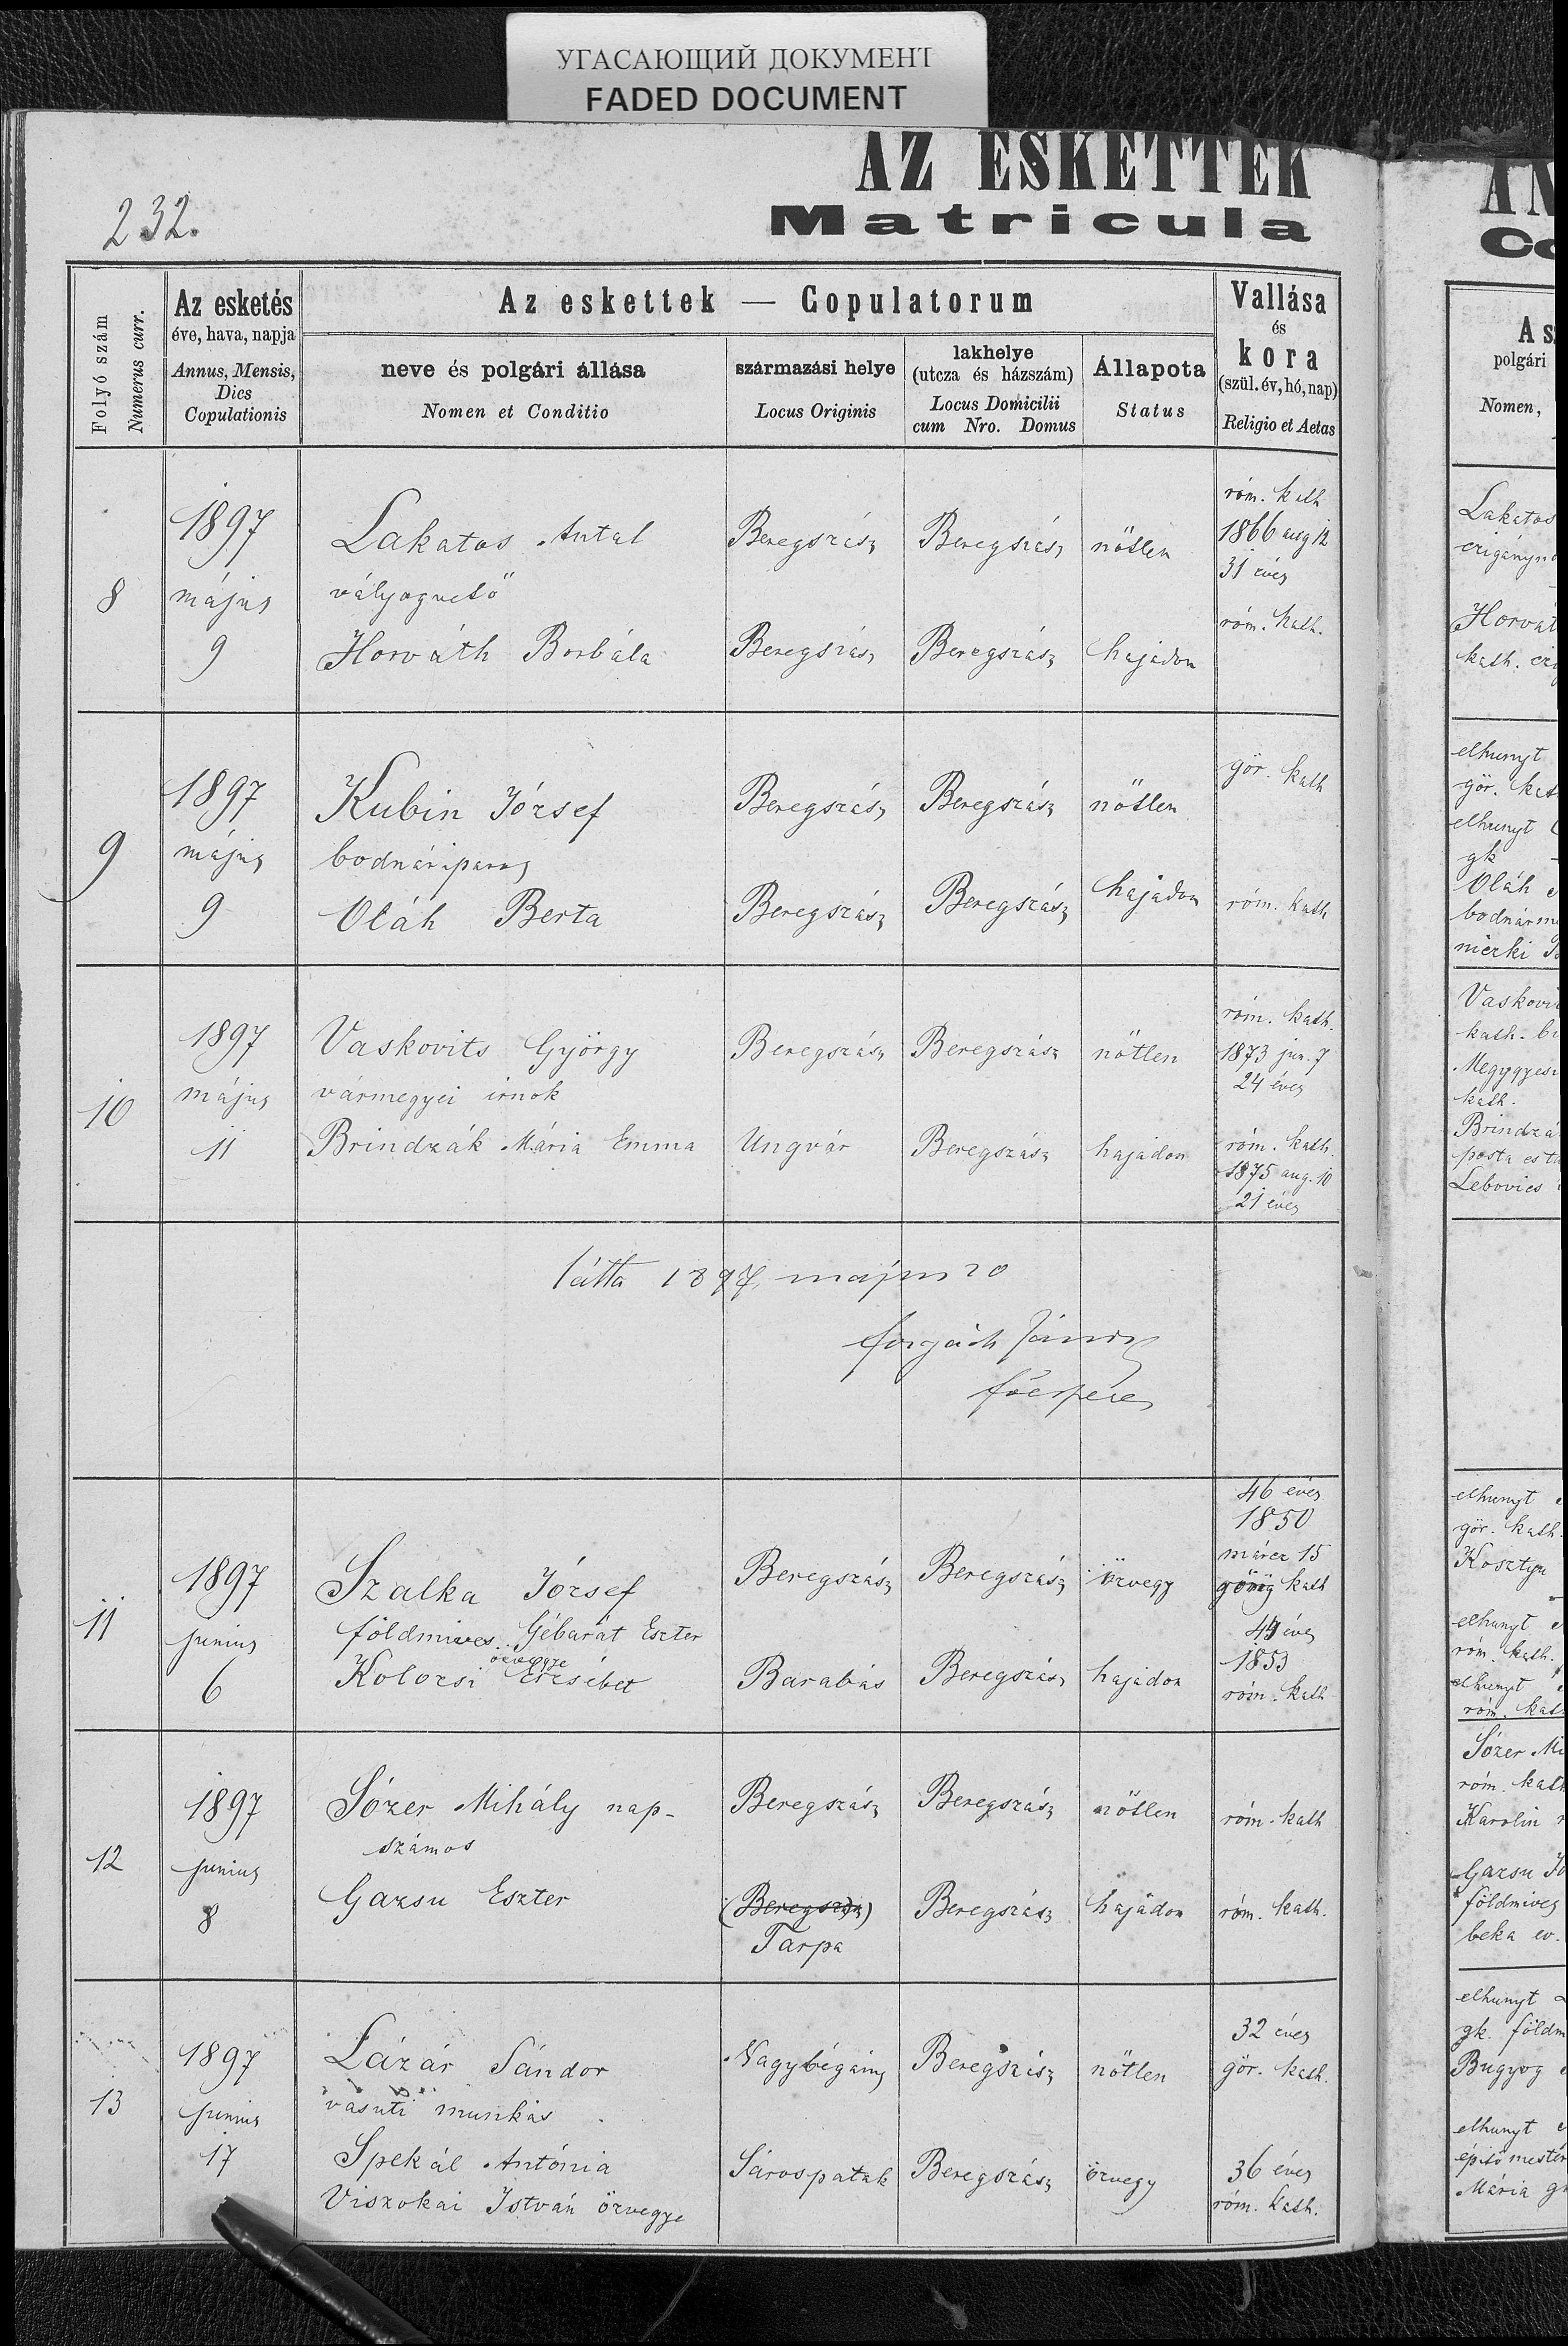 УГАСАЮЩИЙ ДОКУМЕНТ
FADED DOCUMENT
232.
AZ ESKETTEK
Matricula
Folyó szám
Numerus curr.
Az esketés
éve, hava, napja
Annus, Mensis,
Dies
Copulationis
Az eskettek — Copulatorum
neve és polgári állása
Nomen et Conditio
származási helye
Locus Originis
lakhelye
(utcza és házszám)
Locus Domicilii
cum Nro. Domus
Állapota
Status
Vallása
és
kora
(szül. év, hó, nap)
Religio et Aetas
8
1897
május
9
Lakatos Antal
vályogvető
Horváth Borbála
Beregszász
Beregszász
Beregszász
Beregszász
nőtlen
hajadon
róm. kath
1866 aug 12
31 éves
róm. kath.
9
1897
május
9
Kubin József
bodnáriparos
Oláh Berta
Beregszász
Beregszász
Beregszász
Beregszász
nőtlen
hajadon
gör. kath
róm. kath
10
1897
május
11
Vaskovits György
vármegyei irnok
Brindzák Mária Emma
Beregszász
Ungvár
Beregszász
Beregszász
nőtlen
hajadon
róm. kath.
1873 jun. 7
24 éves
róm. kath.
1875 aug. 10
21 éves
látta 1897 május 20
Forgách János
főesperes
11
1897
junius
6
Szalka József
földmives Gébárát Eszter
özvegye
Kolozsi Erzsébet
Beregszász
Barabás
Beregszász
Beregszász
özvegy
hajadon
46 éves
1850
márcz 15
görög kath
44 éves
1853
róm. kath
12
1897
junius
8
Sózer Mihály nap-
számos
Gazsu Eszter
Beregszász
(Beregszász)
Tarpa
Beregszász
Beregszász
nőtlen
hajadon
róm. kath
róm. kath.
13
1897
junius
17
Lázár Sándor
vasuti munkás
Spekál Antónia
Viszokai István özvegye
Nagybégány
Sárospatak
Beregszász
Beregszász
nőtlen
özvegy
32 éves
gör. kath.
36 éves
róm. kath.
AN
Co
A s
polgári
Nomen,
Lakatos
czigány
Horvát
kath.
elhunyt
gör. kat
elhunyt
gk
Oláh
bodnárm
mérki
Vaskovi
kath. b
Megygyesi
kath.
Brindzá
posta és t
Lebovics
elhunyt
gör. kath.
Kosztyu
elhunyt
róm. kath.
elhunyt
róm. kat
Sózer Mi
róm. kath
Karolin
Gazsu Jó
földmives
beka ev.
elhunyt
gk. földm
Bugyog
elhunyt
épitőmester
Mária g